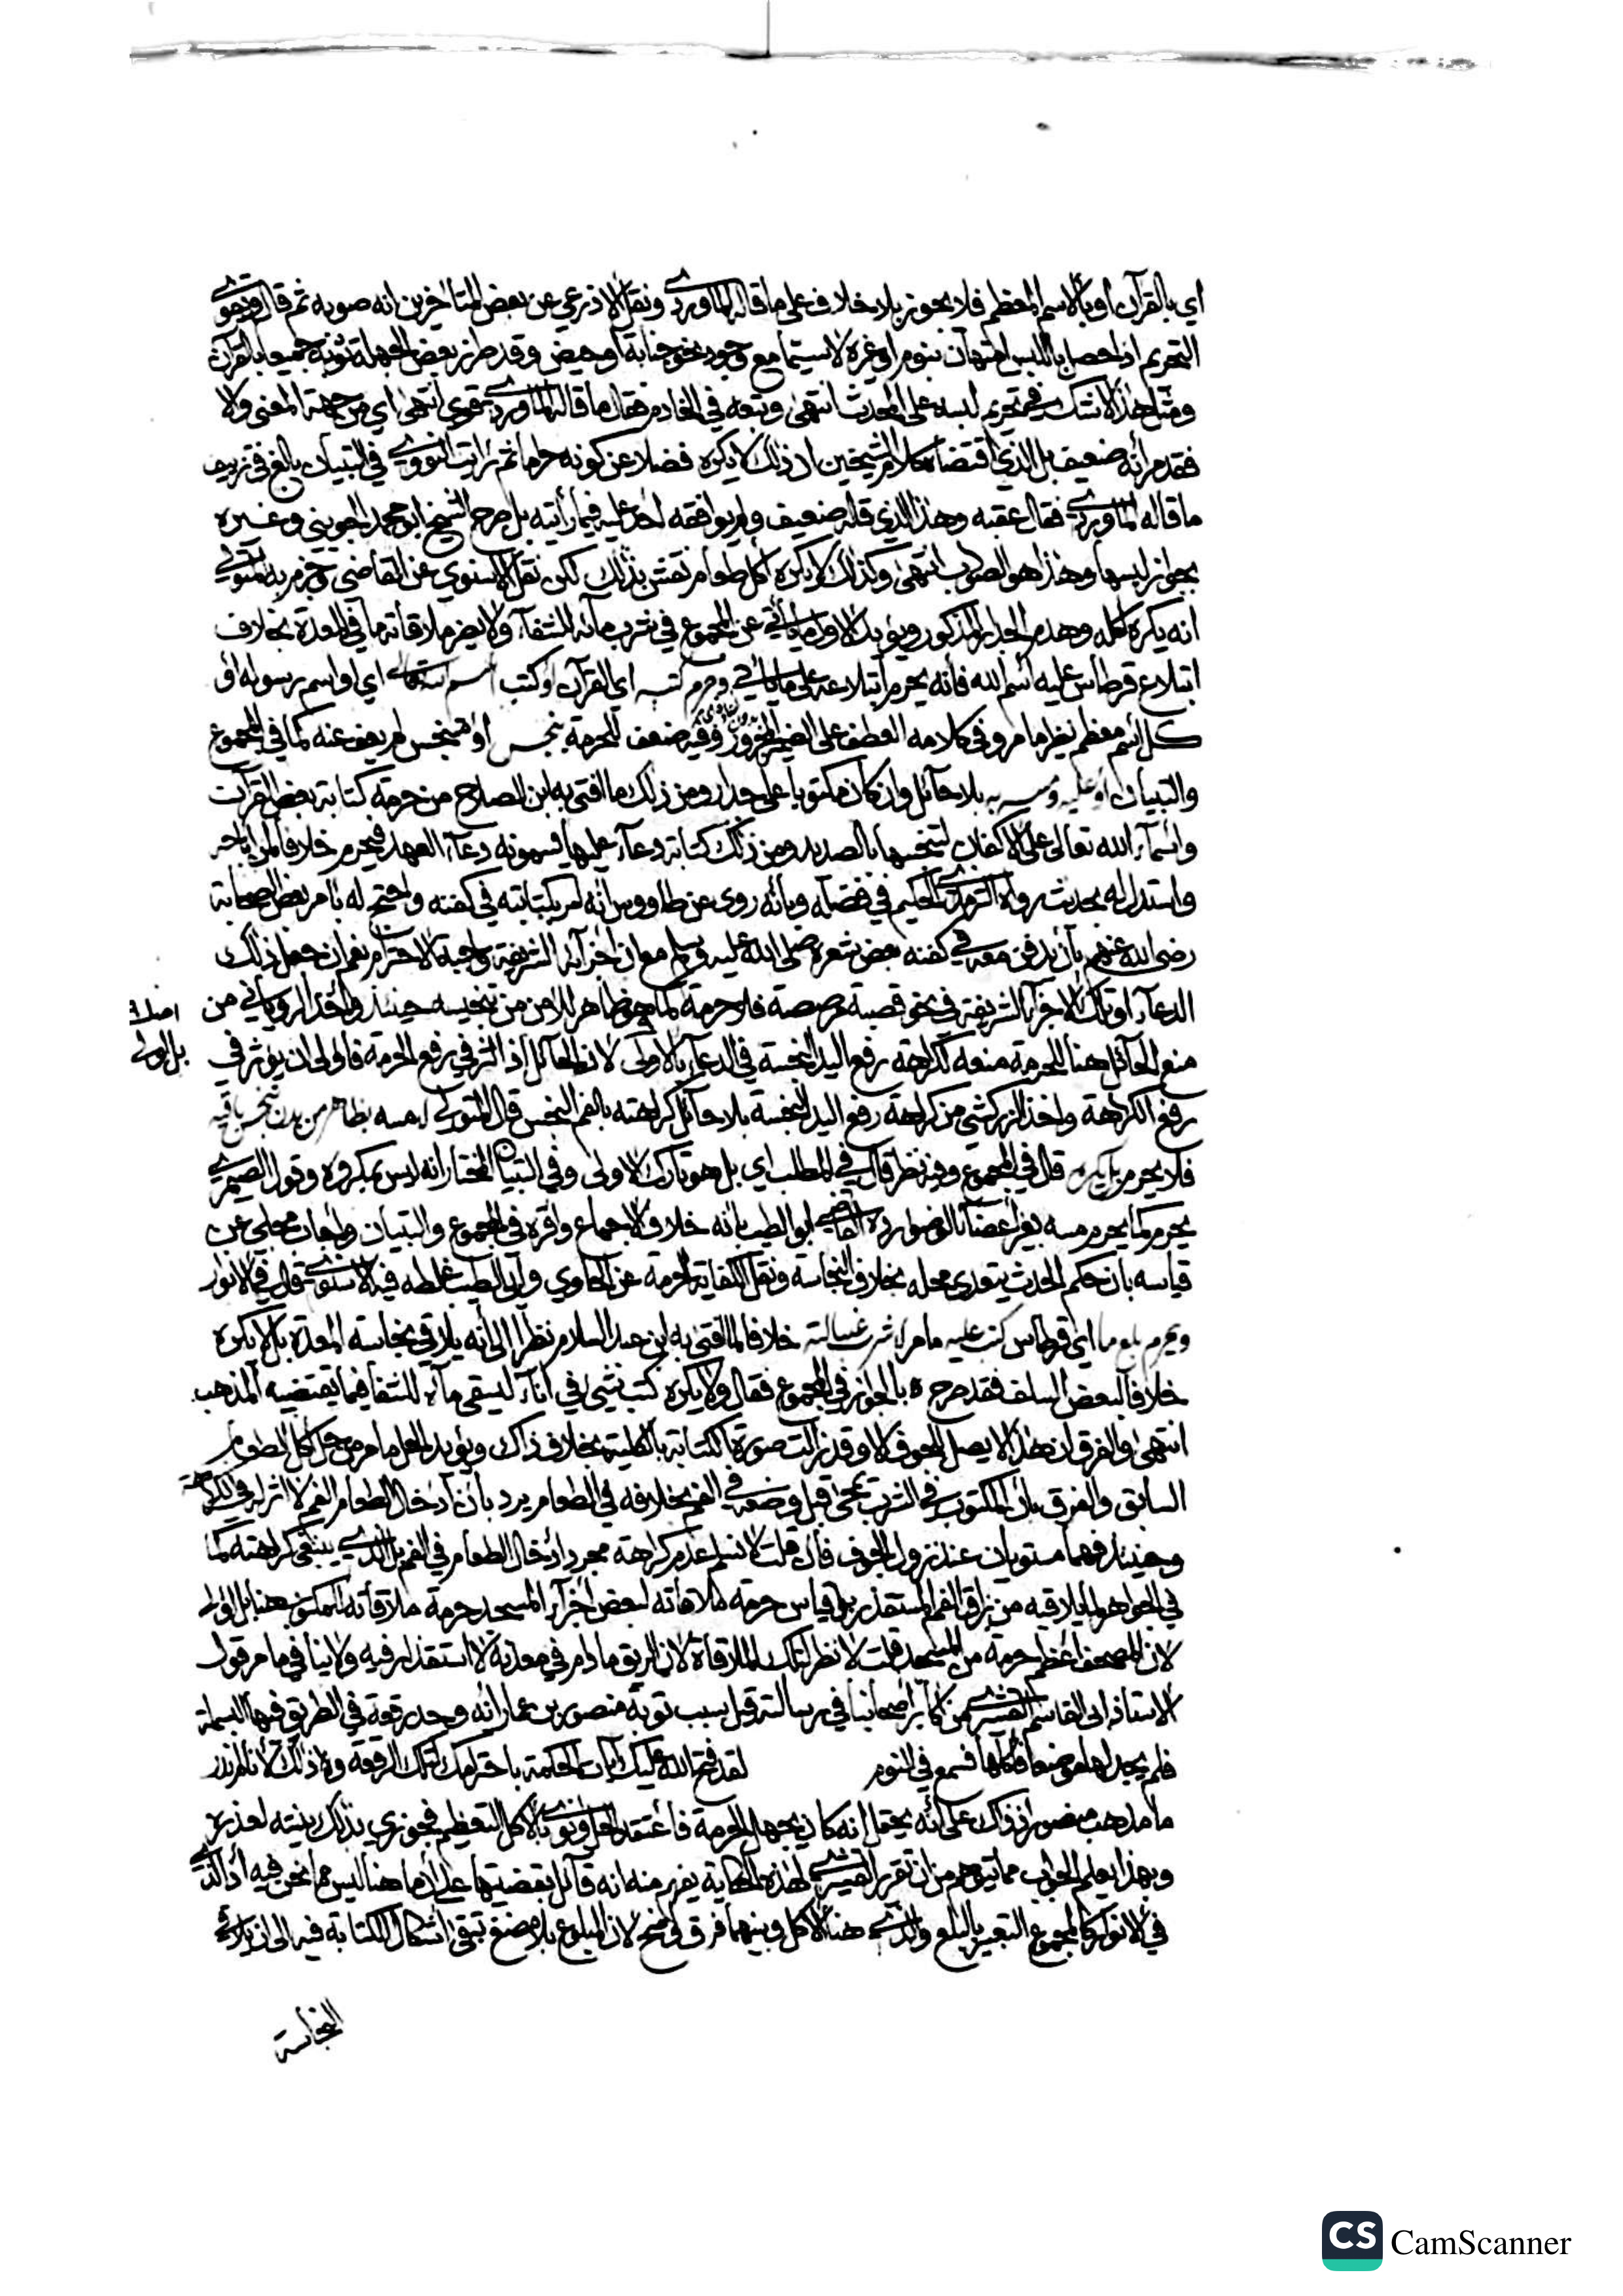 اي بالقرآن او بالاسم المعظم فلا يجوز بلا خلاف على ما قاله الماوردي ونقل الاذرعي عن بعض المتاخرين انه صوبه ثم قال وقد قوي
التحريم اذا حصل باللبس امتهان بنوم او غيره لا سيما مع وجود نحو جنابة او حيض وقد طرز بعض الجهلة ثوبه جميعا بالقرآن
ومثل هذا لا شك في تحريم لبسه على المحدث انتهى وتبعه في الخادم فقال ما قاله الماوردي قوي انتهى اي من جهة المعنى والا
فقد مر انه ضعيف بل الذي اقتضاه كلام الشيخين ان ذلك لا يكره فضلا عن كونه حراما ثم رايت النووي في التبيان بالغ في تزييف
ما قاله الماوردي فقال عقبه وهذا الذي قاله ضعيف ولم يوافقه احد عليه فيما رأيته بل صرح الشيخ ابو محمد الجويني وغيره
بجواز لبسها وهذا هو الصواب انتهى وكذلك لا يكره اكل طعام نقش بذلك لكن نقل الاسنوي عن القاضي وجزم به المتولي
انه يكره اكله وهدم الجدار المذكور ويؤيد الاول ما ياتي عن المجموع في شرب مائه للشفاء ولا يضر ملاقاته ما في المعدة بخلاف
ابتلاع قرطاس عليه اسم الله فانه يحرم ابتلاعه على ما ياتي وحرم كتبه اي القرآن او كتب اسم الله تعالى اي او اسم رسوله او
كل اسم معظم نظير ما مر وفي كلامه العطف على الضمير المجرور وفيه ضعف للحرمة بنجس او متنجس لم يعف عنه كما في المجموع
والتبيان او عليه ومسه به بلا حائل وان كان مكتوبا على جدار ومن ذلك ما افتى به ابن الصلاح من حرمة كتابة بعض القرآن
واسماء الله تعالى على الاكفان لتنجسها بالصديد ومن ذلك كتابة دعاء عليها يسمونه دعاء العهد فيحرم خلافا لمن اباحه
واستدل له بحديث رواه الترمذي الحكيم في فضله وبانه روى عن طاووس انه امر بكتابته في كفنه واحتج له بامر بعض الصحابة
رضي الله عنهم بان يدفن معه في كفنه بعض شعره صلى الله عليه وسلم مع ان اجزآءه الشريفة واجبة الاحترام نعم ان جعل ذلك
الدعاء او تلك الاجزاء الشريفة في نحو قصبة مرصصة فلا حرمة كما هو ظاهر للامن من تنجيسه حينئذ واخذ الروياني من
منع الحائل هنا للحرمة منعه لكراهة رفع اليد النجسة في الدعاء بالاولى لان الحائل اذا اثر في رفع الحرمة فاولى ان يؤثر في
رفع الكراهة واخذ الزركشي من كراهة رفع اليد النجسة بلا حائل كراهته بالفم النجس قال المتولي لا مسه بظاهر من بدن نجس باقيه
فلا يحرم بل يكره قال في المجموع وفيه نظر قال في المطلب اي بل هو تارك الاولى وفي التبيان المختار انه ليس بمكروه وقول الصيمري
يحرم كما يحرم مسه بغير اعضاء الوضوء رده القاضي ابو الطيب بانه خلاف الاجماع واقره في المجموع والتبيان واجاب مجلي عن
قياسه بان حكم الحدث يتعدى محله بخلاف النجاسة ونقل الكفاية الحرمة عن الحاوي وابي الطيب غلطه فيه الاسنوي قال في الانوار
ويحرم بلع ما اي قرطاس كتب عليه ما مر لا شرب غسالته خلافا لما افتى به ابن عبد السلام نظرا الى انه يلاقي نجاسة المعدة بل لا يكره
خلافا لبعض السلف فقد صرح بالجواز في المجموع فقال ولا يكره كتب شئ في اناء ليسقى ماؤه للشفا فيما يقتضيه المذهب
انتهى والفرق ان هذا لا يصل الجوف الا وقد زالت صورة الكتابة بالكلية بخلاف ذاك ويؤيد الحل ما مر من حل اكل الطعام
السابق والفرق بان المكتوب في الشرب يمحى قبل وضعه في الفم بخلافه في الطعام يرد بان ادخال الطعام الفم لا اثر له في الكراهة
وحينئذ فهما مستويان عند نزول الجوف فان قلت لا نسلم عدم كراهة مجرد ادخال الطعام في الفم بل الذي ينبغي كراهته كما
في الجواهر لما يلاقيه من بزاق الفم المستقذر بل قياس حرمة ملاقاته لبعض اجزآء المسجد حرمة ملاقاته للمكتوب هنا بل اولى
لان المصحف اعظم حرمة من المسجد قلت لا نظر لتلك الملاقاة لان الريق ما دام في معدنه لا استقذار فيه ولا ينافي ما مر قول
الاستاذ ابي القاسم القشيري من اكابر اصحابنا في رسالته قيل سبب توبة منصور بن عمار انه وجد رقعة في الطريق فيها البسملة
فلم يجد لها موضعا فاكلها فسمع في النوم لقد فتح الله عليك باب الحكمة باحترامك لتلك الرقعة وذلك لانا لم ندر
ما مذهب منصور اذ ذاك على انه يحتمل انه كان يجهل الحرمة فاعتقد الحل ونوى بالاكل التعظيم فجوزي بذلك بنيته لعذره
وبهذا يعلم الجواب عما يتوهم من ان تقرير القشيري لهذه الحكاية يفهم منه انه قائل بقضيتها على ان ما هنا ليس مما نحن فيه اذ الذي
في الانوار كالمجموع التعبير بالبلع والذي هنا الاكل وبينهما فرق واضح لان المبلوع بلا مضغ تبقى اشكال الكتابة فيه الى ان يلاقي
النجاسة